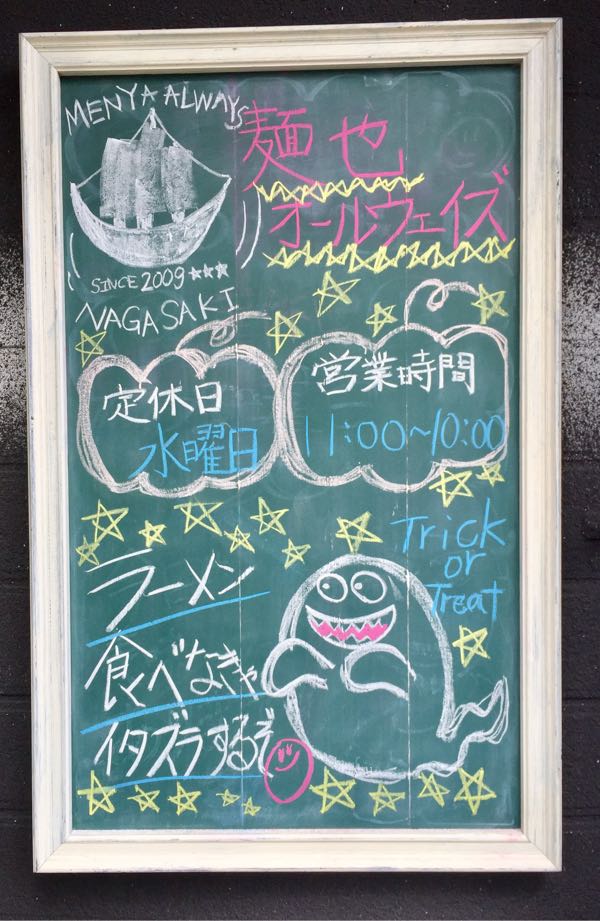 MENYA ALWAYS
SINCE 2009
NAGASAKI
麺也
オールウェイズ
定休日
水曜日
営業時間
11:00~10:00
Trick
or
Treat
ラーメン
食べなきゃ
イタズラするぞ